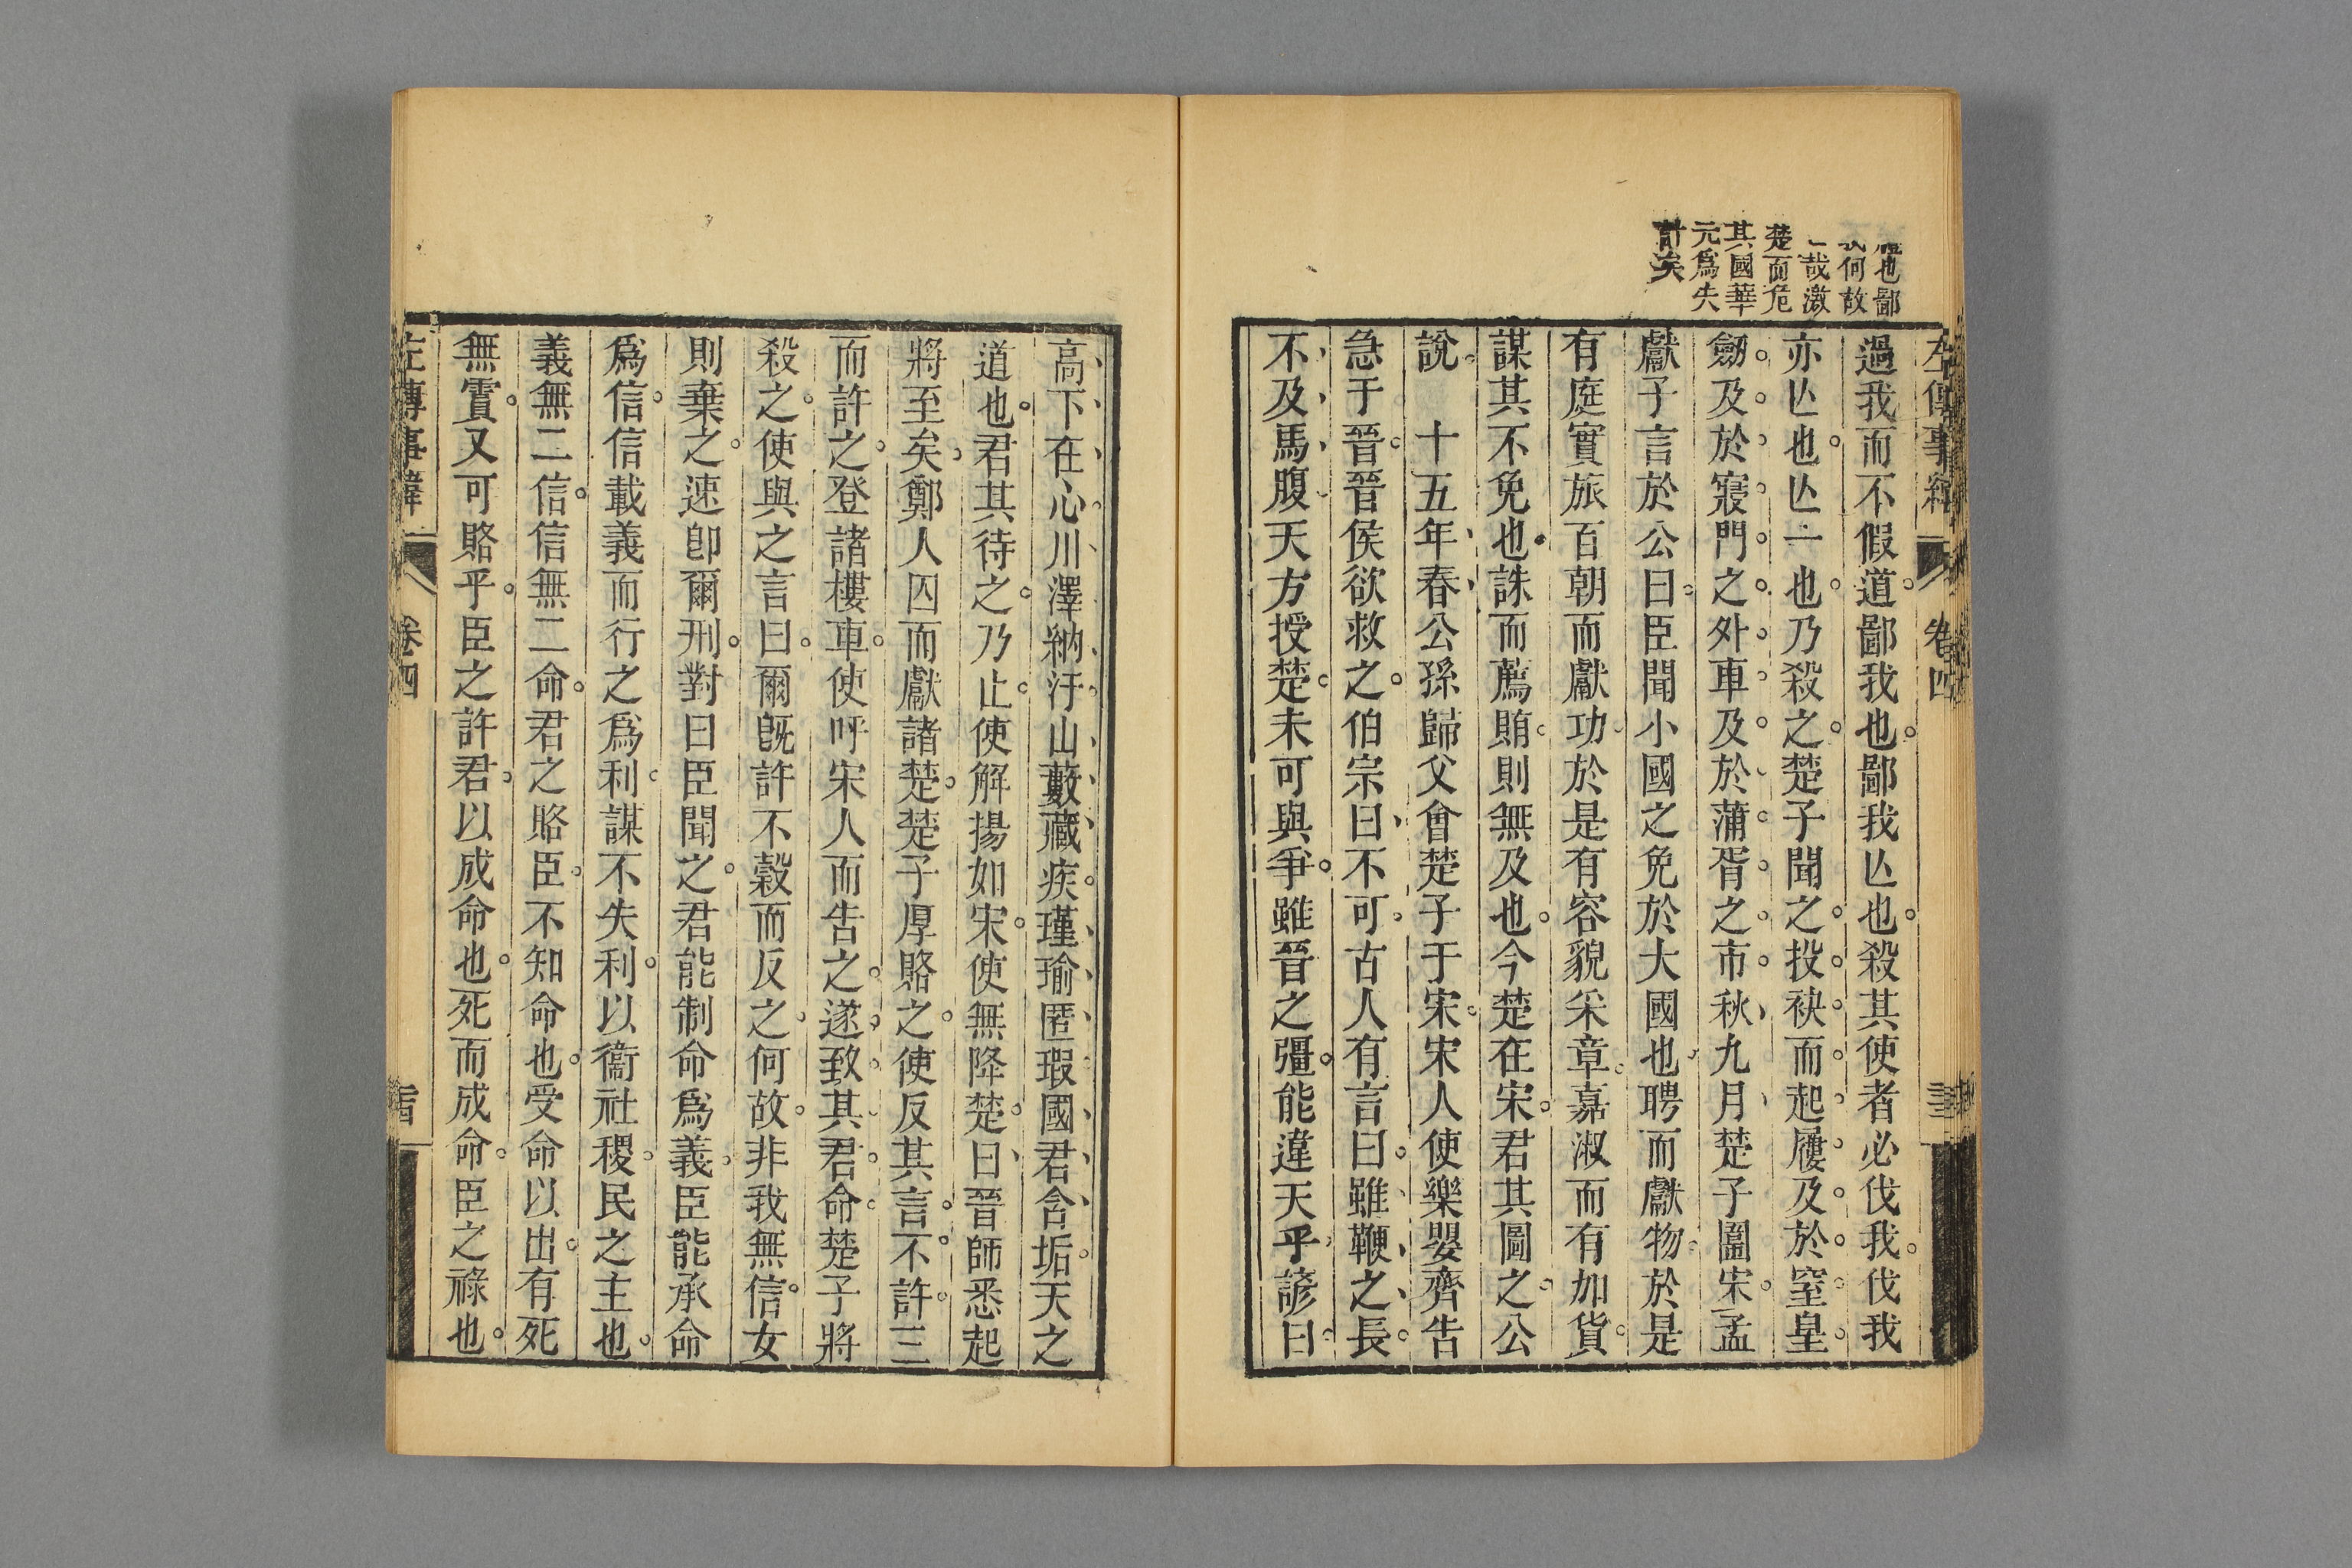 也鄙
何故
哉激
楚而危
其國華
元為失
計矣
過我而不假道鄙我也鄙我亾也殺其使者必伐我伐我
亦亾也亾一也乃殺之楚子聞之投袂而起屨及於窒皇
劒及於寢門之外車及於蒲胥之市秋九月楚子圍宋孟
獻子言於公曰臣聞小國之免於大國也聘而獻物於是
有庭實旅百朝而獻功於是有容貌采章嘉淑而有加貨
謀其不免也誅而薦賄則無及也今楚在宋君其圖之公
說　十五年春公孫歸父會楚子于宋宋人使樂嬰齊告
急于晉晉侯欲救之伯宗曰不可古人有言曰雖鞭之長
不及馬腹天方授楚未可與爭雖晉之彊能違天乎諺曰
高下在心川澤納汙山藪藏疾瑾瑜匿瑕國君含垢天之
道也君其待之乃止使解揚如宋使無降楚曰晉師悉起
將至矣鄭人囚而獻諸楚楚子厚賂之使反其言不許三
而許之登諸樓車使呼宋人而告之遂致其君命楚子將
殺之使與之言曰爾旣許不穀而反之何故非我無信女
則棄之速卽爾刑對曰臣聞之君能制命爲義臣能承命
爲信信載義而行之爲利謀不失利以衞社稷民之主也
義無二信信無二命君之賂臣不知命也受命以出有死
無霣又可賂乎臣之許君以成命也死而成命臣之祿也
左傳事緯
卷四